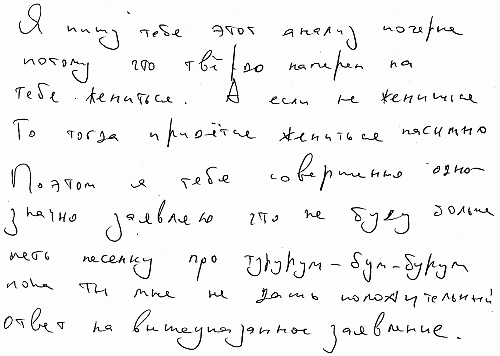 Я пишу тебе этот анализ почерка
потому что твёрдо намерен на
тебе жениться. А если не женишся
То тогда придётся жениться насильно
Поэтом я тебе совершенно одно-
значно заявляю что не буду больше
петь песенку про турурум-бум-бурум
пока ты мне не дашь положительный
ответ на вышеуказанное заявление.